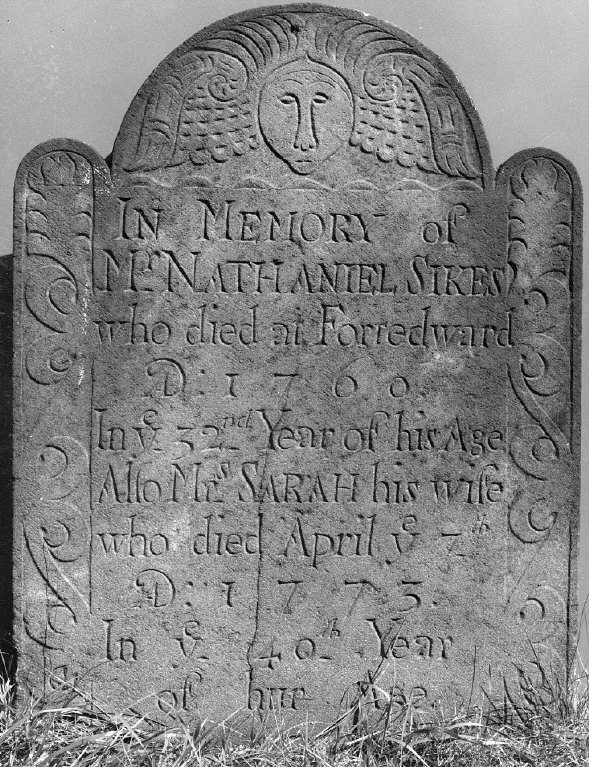 In Memory of
Mr Nathaniel Sikes
who died at Forredward
AD: 1760.
In ye 32nd Year of his Age
Also Mrs Sarah his wife
who died April ye 7th
AD: 1773.
In ye 40th Year
of hur Age.